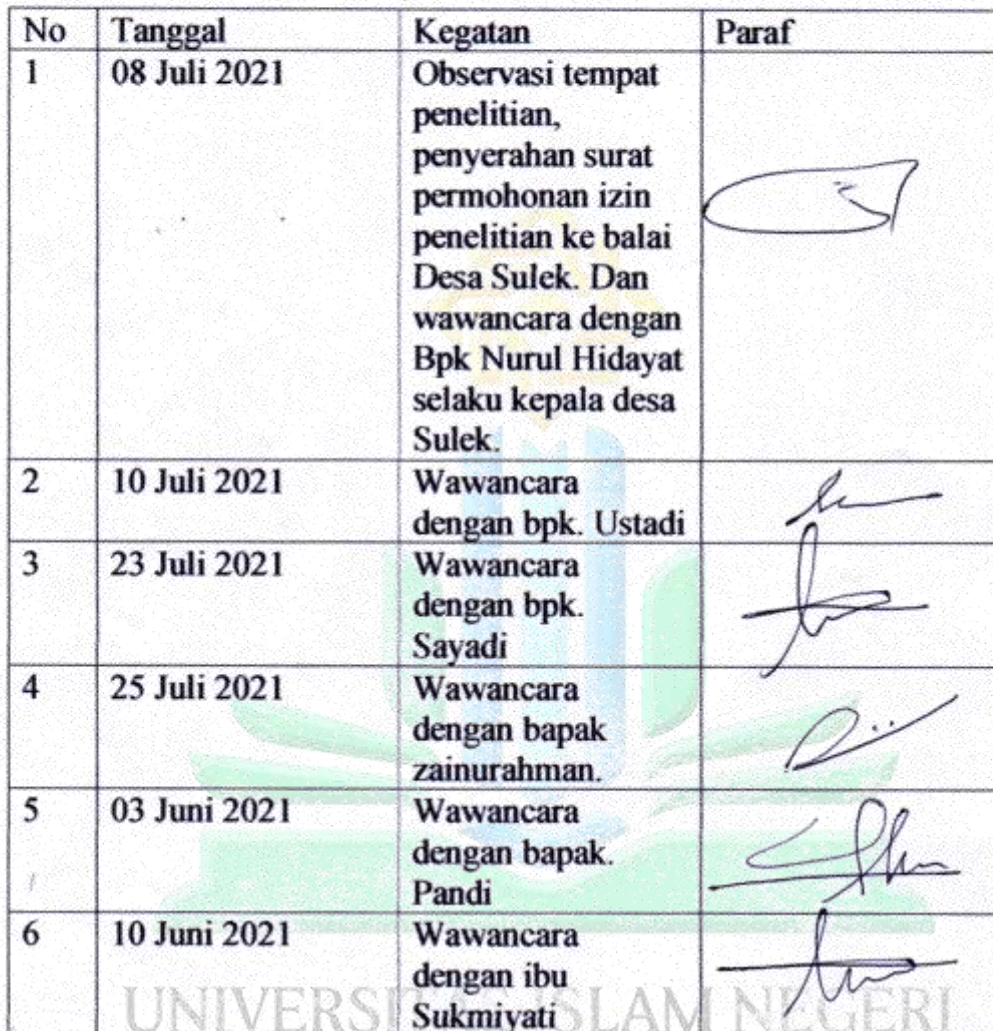 No Tanggal Kegatan Paraf
1 08 Juli 2021 Observasi tempat
penelitian,
penyerahan surat
permohonan izin
penelitian ke balai
Desa Sulek. Dan
wawancara dengan
Bpk Nurul Hidayat
selaku kepala desa
Sulek.
2 10 Juli 2021 Wawancara
dengan bpk. Ustadi
3 23 Juli 2021 Wawancara
dengan bpk.
Sayadi
4 25 Juli 2021 Wawancara
dengan bapak
zainurahman.
5 03 Juni 2021 Wawancara
dengan bapak.
Pandi
6 10 Juni 2021 Wawancara
dengan ibu
Sukmiyati
UNIVERSITAS ISLAM NEGERI